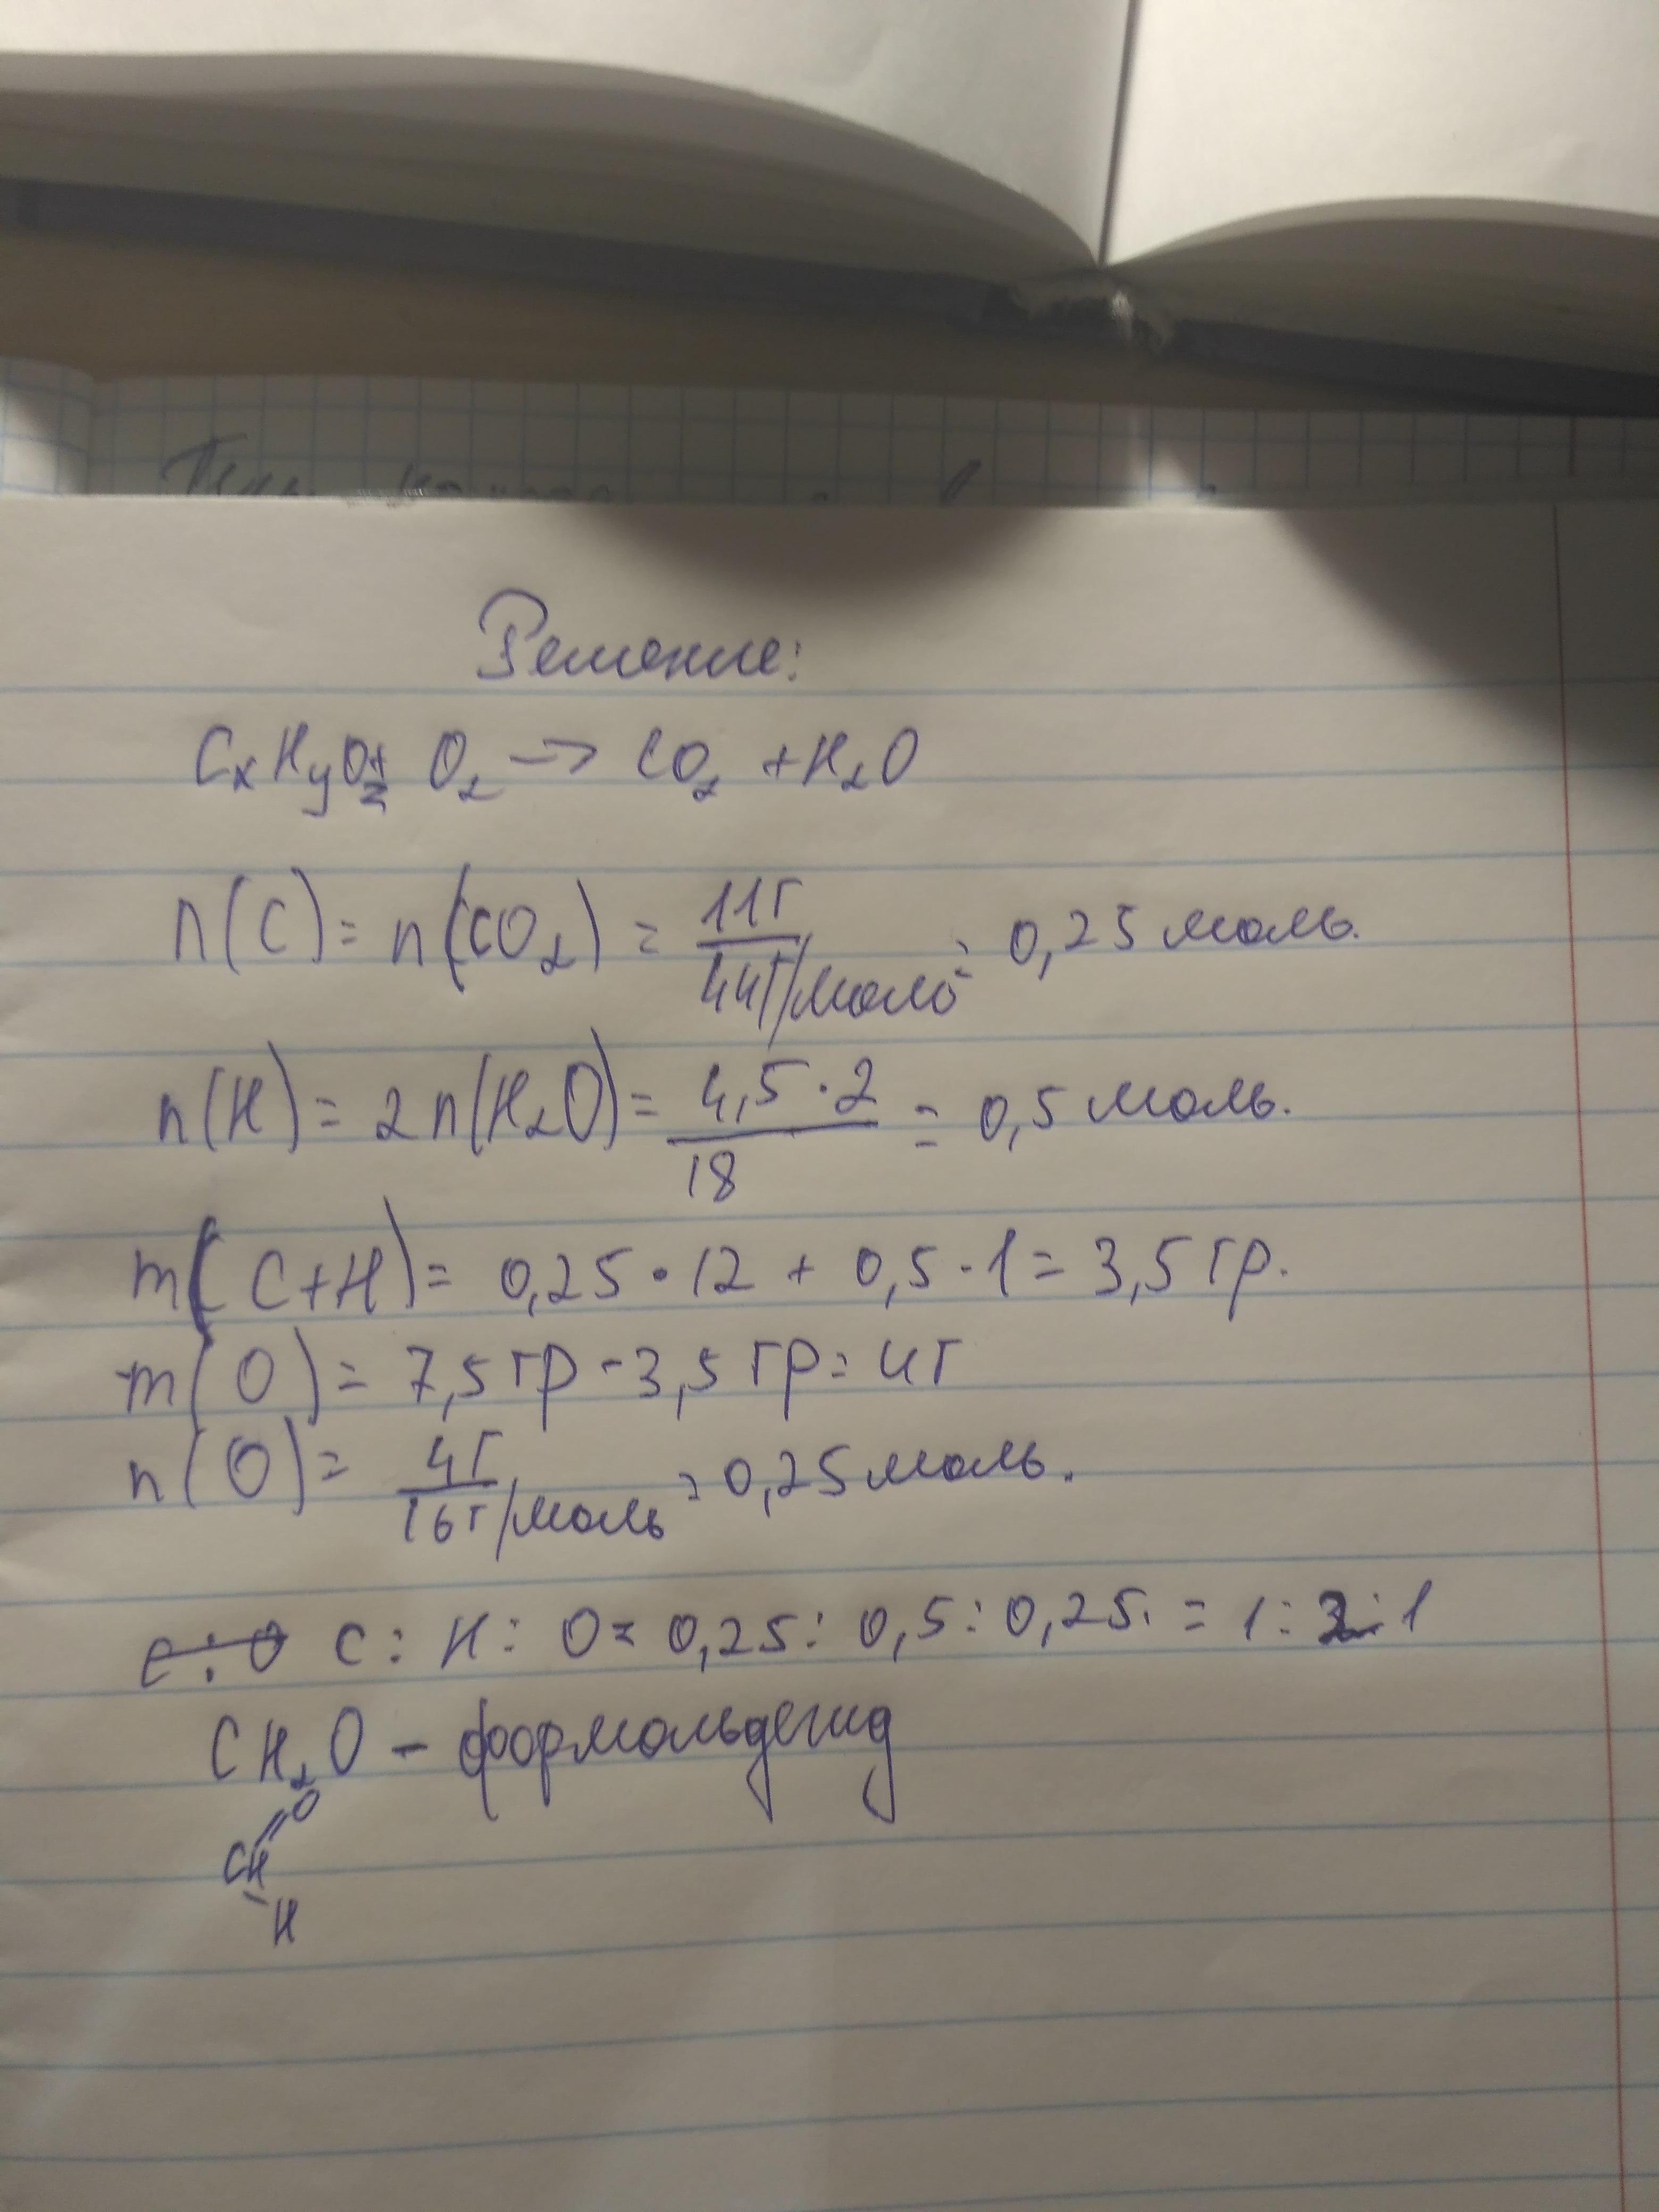 Решение:
CxHyOz + O₂ -> CO₂ + H₂O
n(C) = n(CO₂) = 11г / 44г/моль = 0,25 моль.
n(H) = 2n(H₂O) = 4,5·2 / 18 = 0,5 моль.
m(C+H) = 0,25·12 + 0,5·1 = 3,5 гр.
m(O) = 7,5 гр - 3,5 гр = 4г
n(O) = 4г / 16г/моль = 0,25 моль.
C:O C : H : O = 0,25 : 0,5 : 0,25. = 1 : 2 : 1
CH₂O - формольдегид
O
CH
H